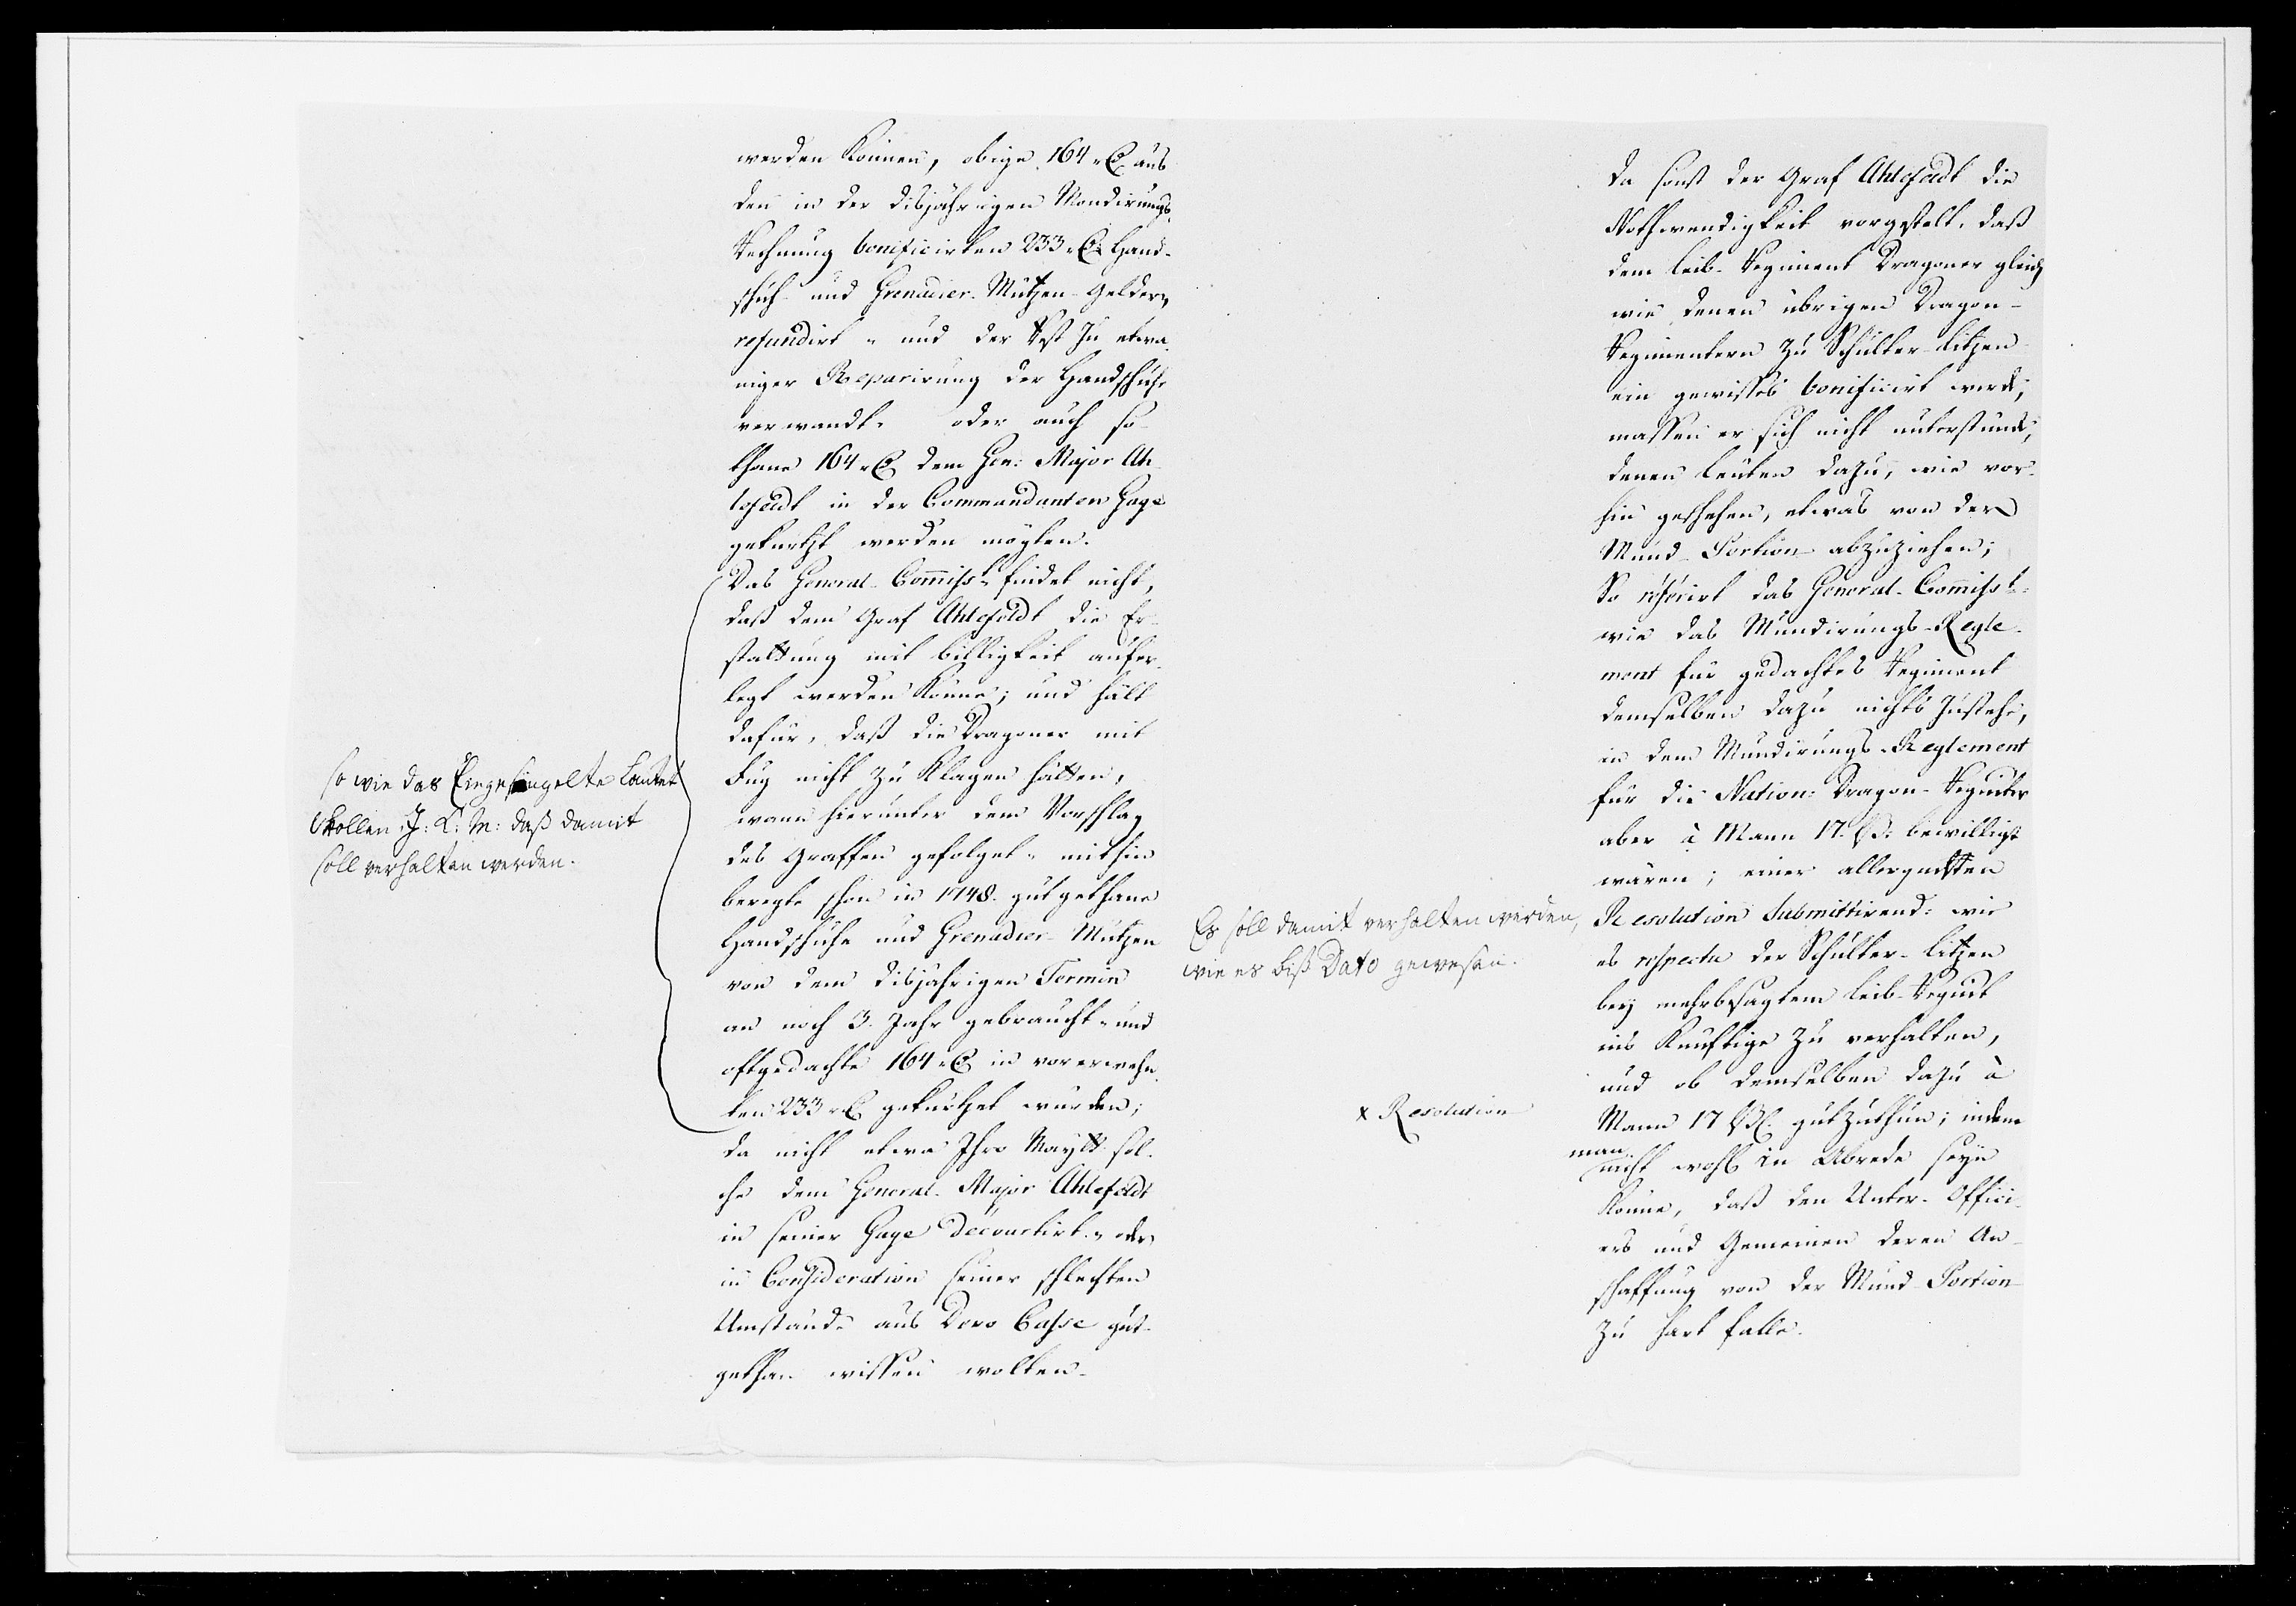 werden können, obige 164 r aus
den in der disjährigen Mondirungs-
Rechnung bonificirten 233 r Hand-
schuh- und Grenadier-Mützen-Geldern
refundirt - und der Rest zu etwa-
niger Reparirung der Handschuh
verwandt - oder auch so-
thane 164 r dem Gen: Major Ah-
lefeldt in der Commandanten Gage
gekürtzt werden mögten.
Das General-Commiss: findet nicht,
daß dem Graf Ahlefeldt die Er-
stattung mit billigkeit aufer-
legt werden könne; und hält
dafür, daß die Dragoner mit
Fug nicht zu klagen hätten,
wann hierunter dem Vorschlag
des Graffen gefolget - mithin
beregte schon in 1748. gut gethane
Handschuhe und Grenadier-Mützen
von dem disjährigen Termin
an noch 3. Jahr gebraucht - und
oftgedachte 164 r in vorerwehn-
ten 233 r gekürtzet würden;
da nicht etwa Ihro Maytt sol-
che dem General-Major Ahlefeldt
in seiner Gage decourtirt - oder
in Consideration seiner schlechten
Umstände aus Dero Casse gut-
gethan wissen wolten.
so wie das Eingeklingelte Lautet
Wollen J: K: M: daß damit
soll verhalten werden.
Da sonst der Graf Ahlefeldt die
Nothwendigkeit vorgestelt, daß
dem Leib-Regiment Dragoner gleich
wie denen übrigen Dragon-
Regimentern zu Schulter-Litzen
ein gewisses bonificirt werde,
massen er sich nicht unterstünde,
denen Leuten dazu, wie vor-
hin geschehen, etwas von der
Mund-Portion abzuziehen;
So referirt das General-Commiss:t
wie das Mundirungs-Regle-
ment für gedachtes Regiment
demselben dazu nichts zustehe,
in dem Mundirungs-Reglement
für die Nation: Dragon-Regimter
aber à Mann 17. ß: bewilligt
wären; einer allergndsten
Resolution submittirend: wie
es respectu der Schulter-Litzen
bey mehrbesagtem Leib-Regimt
ins Künftige zu verhalten,
und ob demselben dazu à
Mann 17 ß gutzuthun; indem
man
nicht wohl in Abrede seyn
könne, daß den Unter-Offici-
ers und Gemeinen deren An-
schaffung von der Mund-Portion
zu hart falle.
Es soll damit verhalten werden,
wie es biß Dato gewesen.
x Resolution